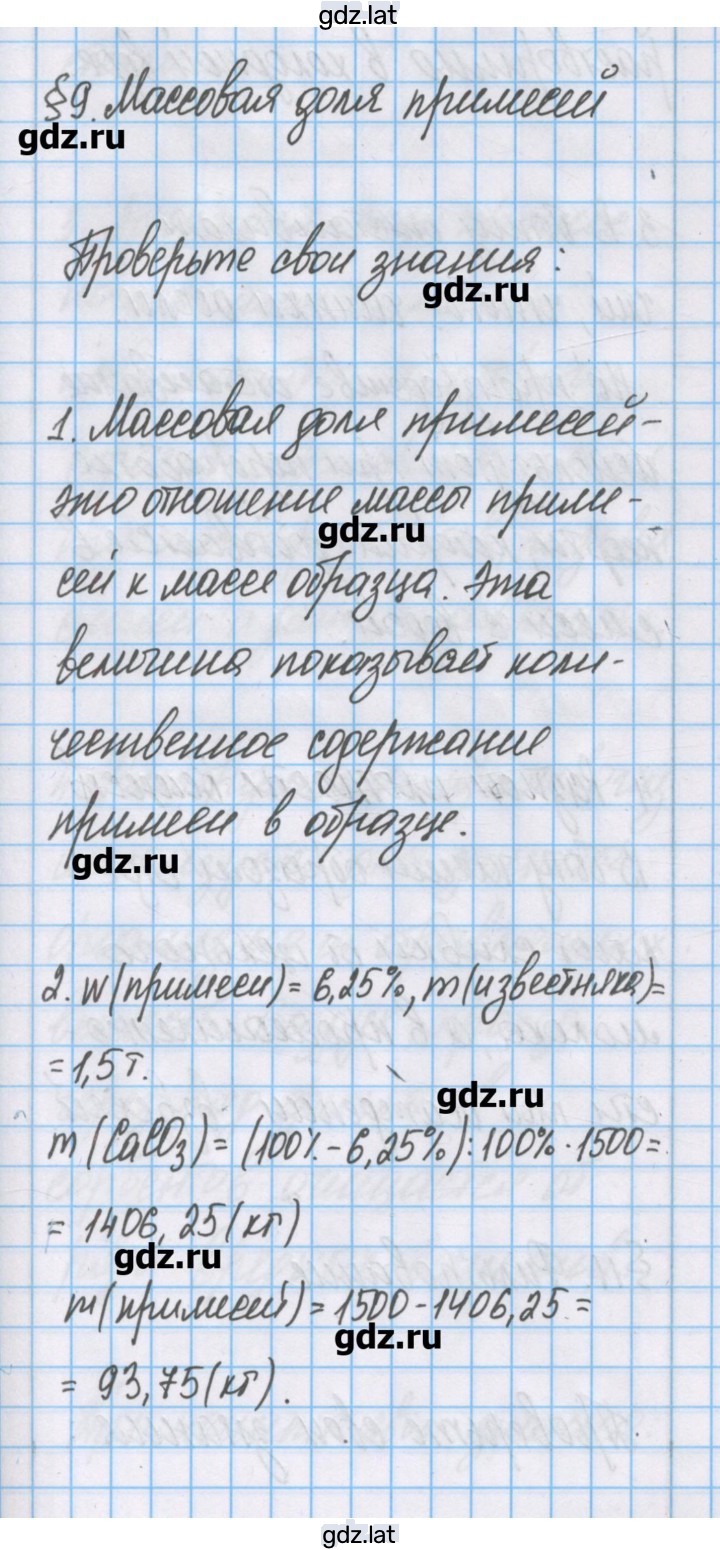 gdz.lat
§9. Массовая доля примесей
gdz.ru
Проверьте свои знания:
gdz.ru
1. Массовая доля примесей-
это отношение массы приме-
gdz.ru
сей к массе образца. Эта
величина показывает коли-
чественное содержание
примеси в образце.
gdz.ru
2. w(примеси) = 6,25%, m(известняка)=
= 1,5 т.
gdz.ru
m(CaCO3) = (100% - 6,25%) : 100% · 1500 =
= 1406,25 (кг)
gdz.ru
m(примесей) = 1500 - 1406,25 =
gdz.ru
= 93,75 (кг).
gdz.lat